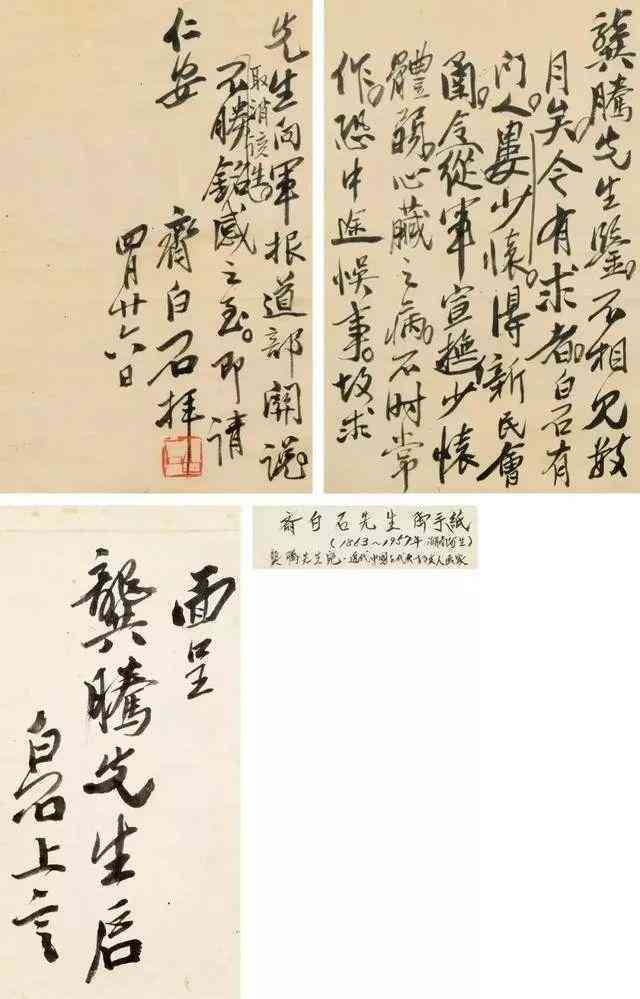 龔騰先生鑒。不相見數
月矣。今有求者。白石有
門人婁少懷。得新民會
函。令從軍宣撫。少懷
體弱。心臟之病。不时常
作。恐中途悮事。故求
先生向軍報道部開說
取消該
不勝銘感之至。即請
仁安
齊白石拜
四月廿六日
面呈
龔騰先生启
白石上言
齊白石先生 御手紙
(1863~1957年 湖南省生)
龔騰先生宛・近代中国を代表する文人画家